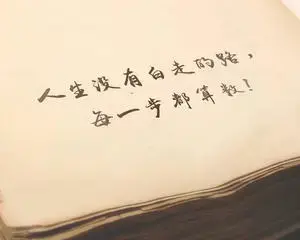 人生没有白走的路，
每一步都算数！